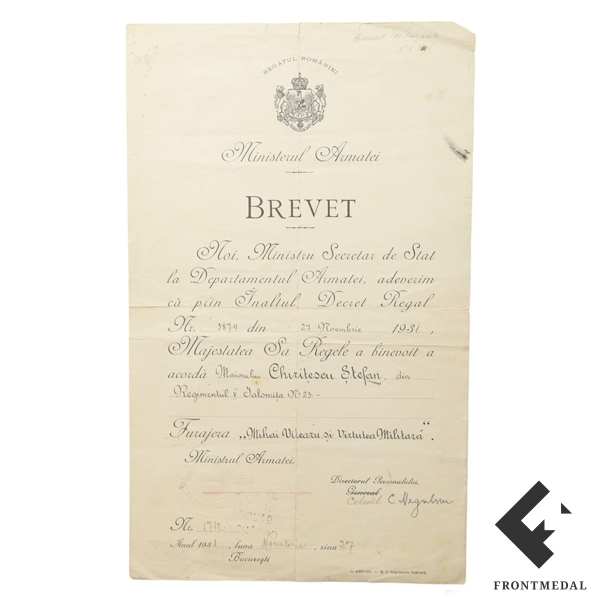 REGATUL ROMÂNIEI
Ministerul Armatei
BREVET
Noi, Ministru Secretar de Stat
la Departamentul Armatei, adeverim
că prin Înaltul Decret Regal
Nr. 3879 din 27 Noembrie 1931,
Majestatea Sa Regele a binevoit a
acordà Maiorului Chirițescu Ștefan, din
Regimentul
Ialomița No 23-
Furajera „Mihai Viteazu, și Virtutea Militară”.
Ministrul Armatei,
Directorul Personalului,
General
Colonel C Negulescu
Nr.
Anul 1931, luna
ziua 27
București
FRONTMEDAL